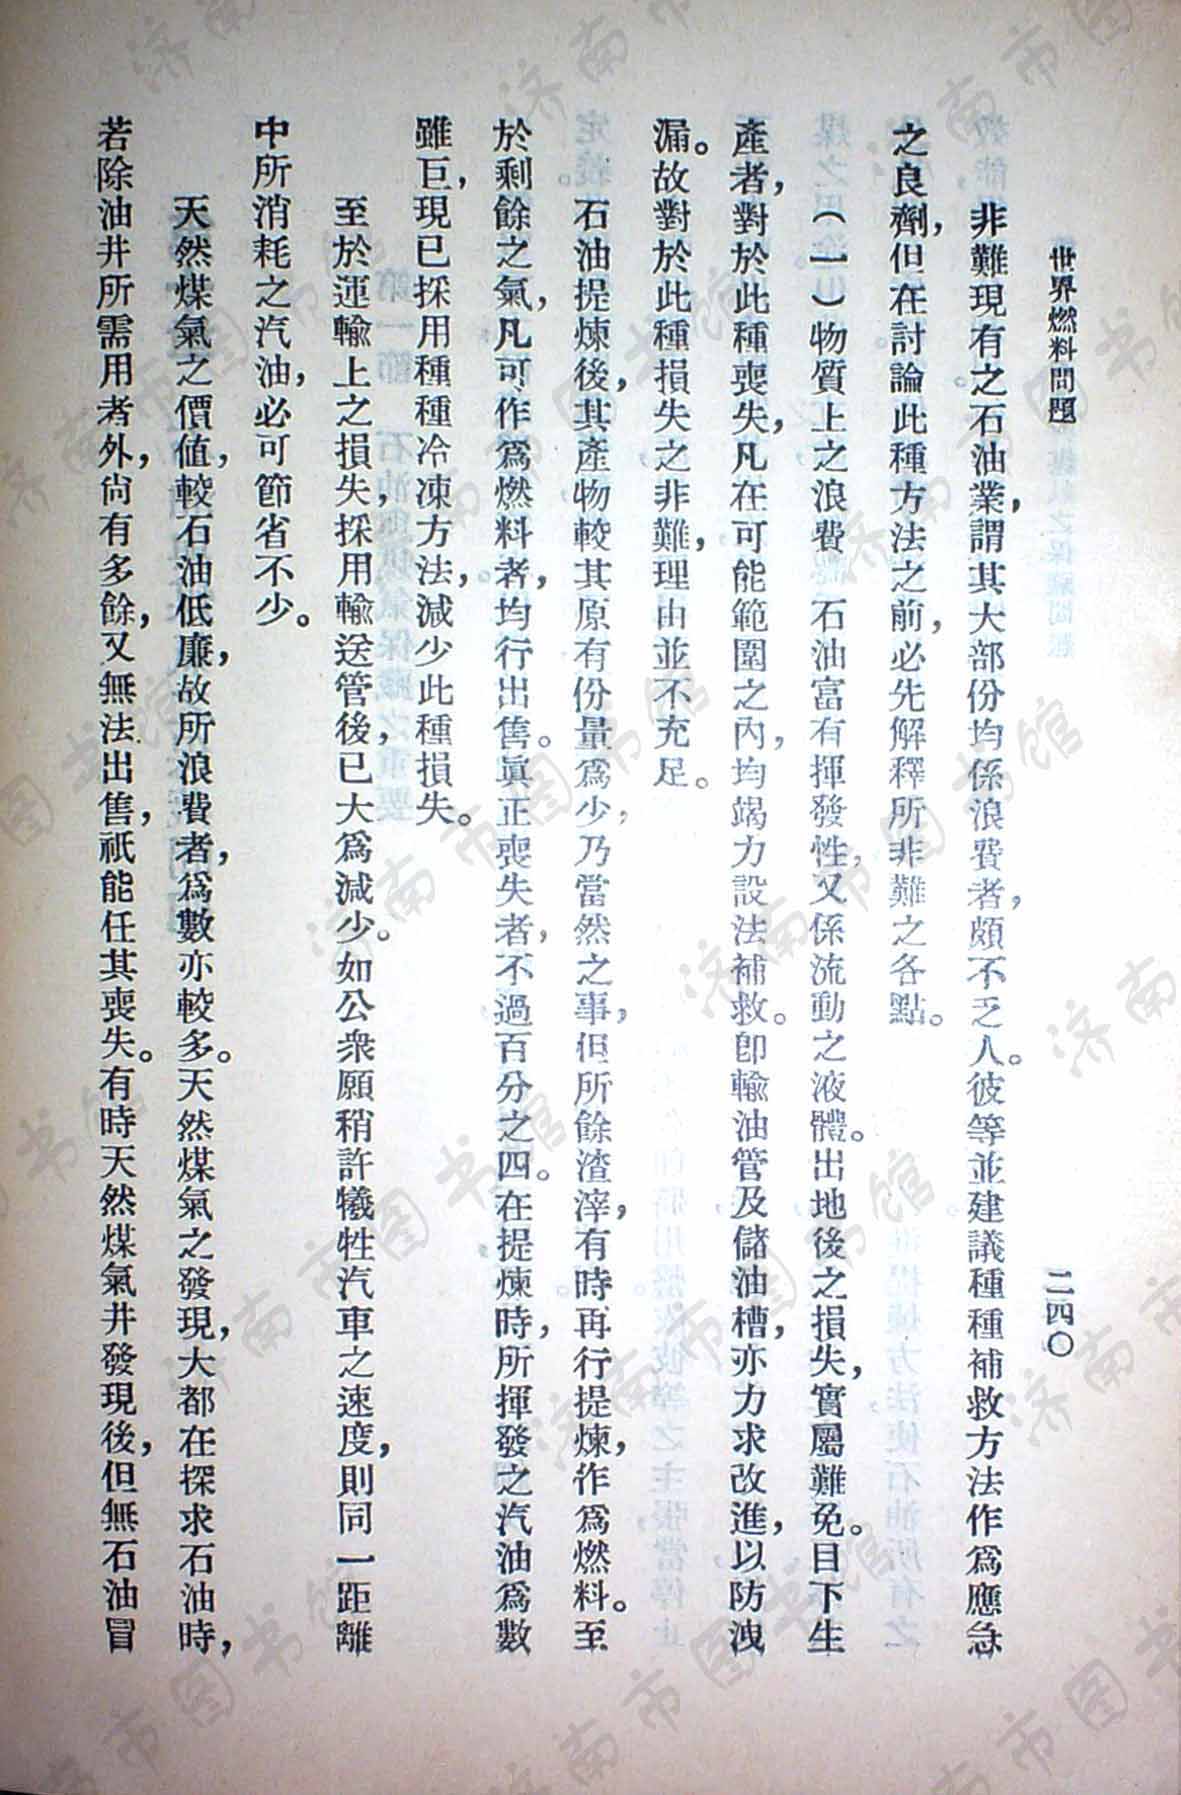 世界燃料問題
二四〇
非難現有之石油業，謂其大部份均係浪費者，頗不乏人。彼等並建議種種補救方法作爲應急
之良劑，但在討論此種方法之前，必先解釋所非難之各點。
（一）物質上之浪費　石油富有揮發性，又係流動之液體。出地後之損失，實屬難免。目下生
產者，對於此種喪失，凡在可能範圍之內，均竭力設法補救。卽輸油管及儲油槽，亦力求改進，以防洩
漏。故對於此種損失之非難，理由並不充足。
石油提煉後，其產物較其原有份量爲少，乃當然之事，但所餘渣滓，有時再行提煉，作爲燃料。至
於剩餘之氣，凡可作爲燃料者，均行出售。眞正喪失者，不過百分之四。在提煉時，所揮發之汽油爲數
雖巨，現已採用種種冷凍方法，減少此種損失。
至於運輸上之損失，採用輸送管後，已大爲減少。如公衆願稍許犧牲汽車之速度，則同一距離
中所消耗之汽油，必可節省不少。
天然煤氣之價值，較石油低廉，故所浪費者，爲數亦較多。天然煤氣之發現，大都在探求石油時，
若除油井所需用者外，尙有多餘，又無法出售，祇能任其喪失。有時天然煤氣井發現後，但無石油冒
济南市图书馆